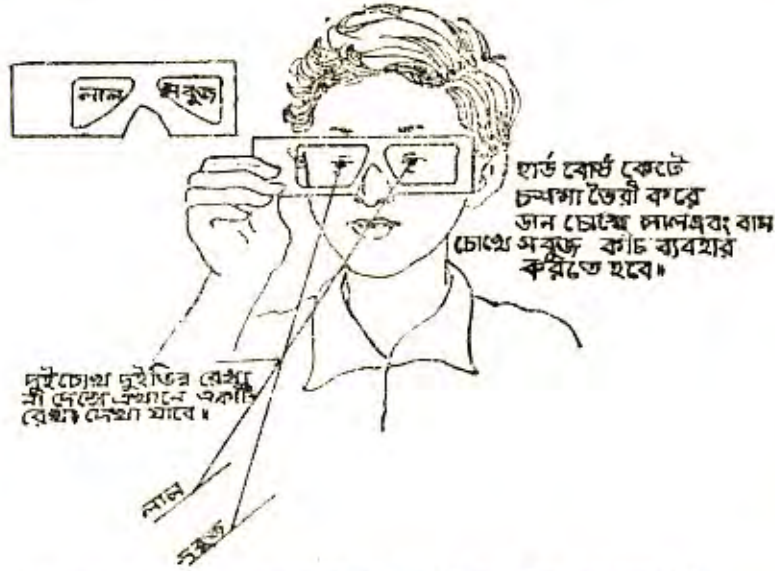 লাল সবুজ
হার্ড বোর্ড কেটে
চশমা তৈরী করে
ডান চোখে লাল এবং বাম
চোখে সবুজ কাঁচ ব্যবহার
করিতে হবে॥
দুইচোখে দুইভিন্ন রেখা
না দেখে এখানে একটি
রেখা দেখা যাবে॥
লাল
সবুজ